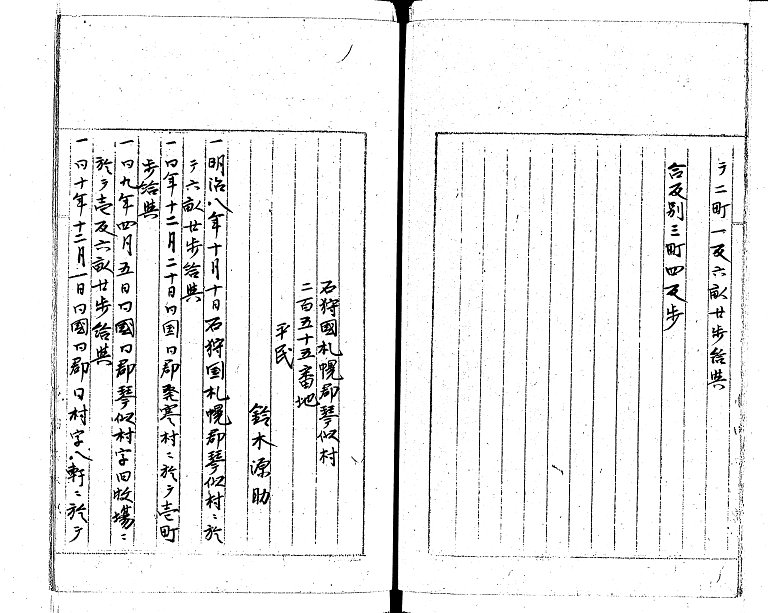 テ二町一反六畝廿歩給與
合反別三町四反歩
石狩國札幌郡琴似村
二百五十五番地
平民
鈴木源助
一明治八年十月十日石狩国札幌郡琴似村ニ於
テ六畝廿歩給與
一仝年十二月二十日仝国仝郡発寒村ニ於テ壱町
歩給與
一仝九年四月五日仝國仝郡琴似村字旧牧場ニ
於テ壱反六畝廿歩給與
一仝十年十二月一日仝國仝郡仝村字八軒ニ於テ